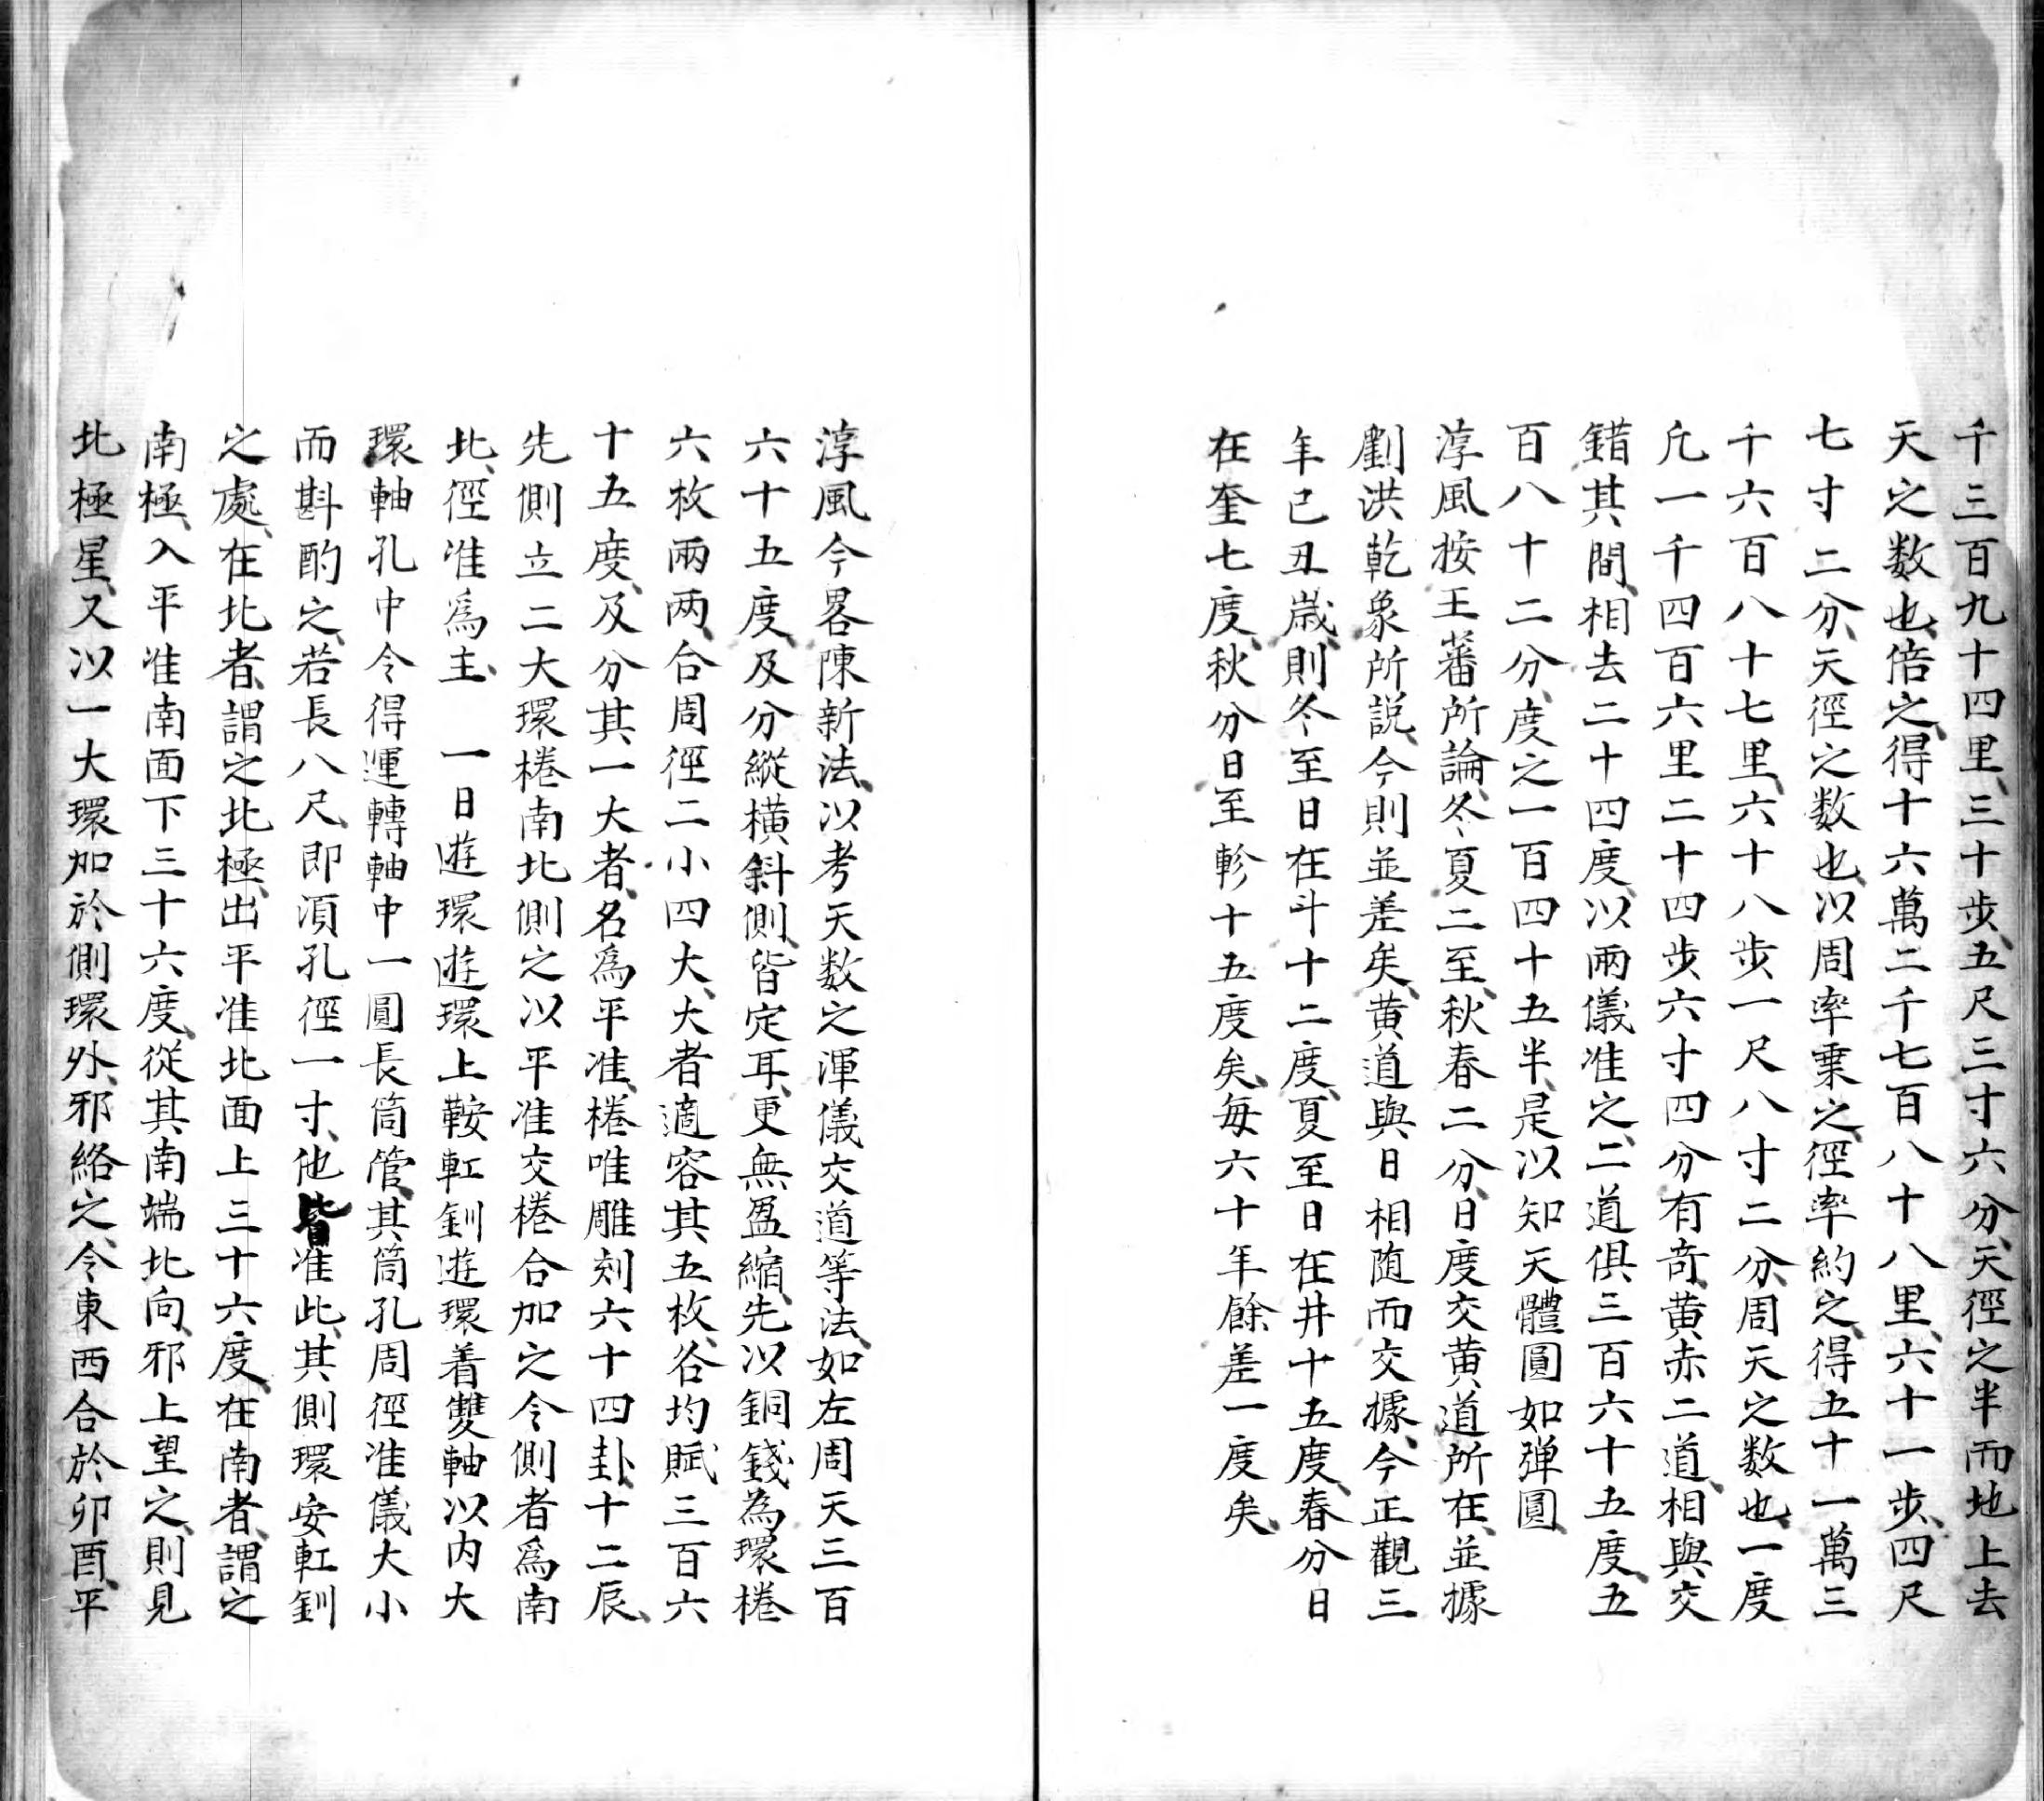 千三百九十四里三十步五尺三寸六分天徑之半而地上去
天之数也倍之得十六萬二千七百八十八里六十一步四尺
七寸二分天徑之数也以周率乗之徑率約之得五十一萬三
千六百八十七里六十八步一尺八寸二分周天之数也一度
凢一千四百六里二十四步六寸四分有竒黄赤二道相與交
錯其間相去二十四度以兩儀准之二道俱三百六十五度五
百八十二分度之一百四十五半是以知天體圓如弹圓
淳風按王蕃所論冬夏二至秋春二分日度交黄道所在並據
劉洪乾象所説今則並差矣黄道與日相随而交據今正觀三
年己丑歳則冬至日在斗十二度夏至日在井十五度春分日
在奎七度秋分日至軫十五度矣每六十年餘差一度矣
淳風今畧陳新法以考天数之渾儀交道等法如左周天三百
六十五度及分縱横斜側皆定耳更無盈縮先以銅錢為環棬
六枚兩兩合周徑二小四大大者適容其五枚各均賦三百六
十五度及分其一大者名爲平准棬唯雕刻六十四卦十二辰
先側立二大環棬南北側之以平准交棬合加之令側者爲南
北徑准爲主 一日遊環遊環上鞍䡉釧遊環着雙軸以内大
環軸孔中令得運轉軸中一圓長筒管其筒孔周徑准儀大小
而斟酌之若長八尺即湏孔徑一寸他皆准此其側環安䡉釧
之處在北者謂之北極出平准北面上三十六度在南者謂之
南極入平准南面下三十六度從其南端北向邪上望之則見
北極星又以一大環加於側環外邪絡之令東西合於卯酉平